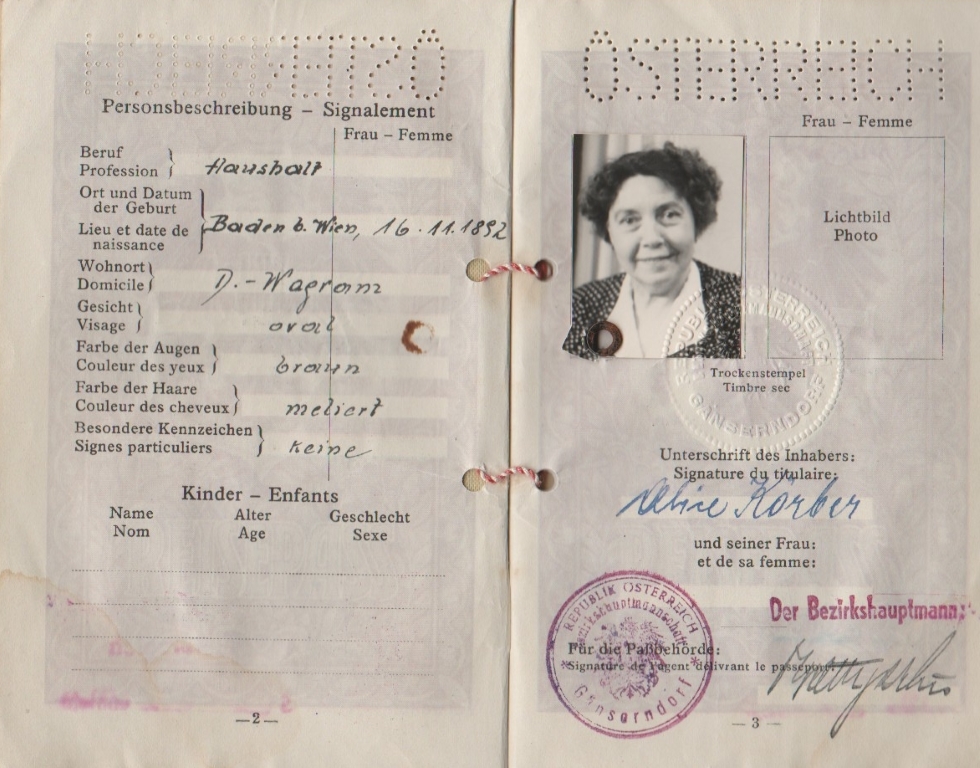 ÖSTERREICH
Personsbeschreibung – Signalement
Frau – Femme
Beruf
Profession
Haushalt
Ort und Datum
der Geburt
Lieu et date de
naissance
Baden b. Wien, 16.11.1892
Wohnort
Domicile
D.-Wagram
Gesicht
Visage
oval
Farbe der Augen
Couleur des yeux
braun
Farbe der Haare
Couleur des cheveux
meliert
Besondere Kennzeichen
Signes particuliers
keine
Kinder – Enfants
Name Alter Geschlecht
Nom Age Sexe
—2—
ÖSTERREICH
Frau – Femme
Lichtbild
Photo
REPUBLIK ÖSTERREICH
GÄNSERNDORF
Trockenstempel
Timbre sec
Unterschrift des Inhabers:
Signature du titulaire:
Alice Körber
und seiner Frau:
et de sa femme:
Der Bezirkshauptmann:
REPUBLIK ÖSTERREICH
Bezirkshauptmannschaft
Gänserndorf
Für die Paßbehörde:
Signature de l'agent délivrant le passeport:
— 3 —